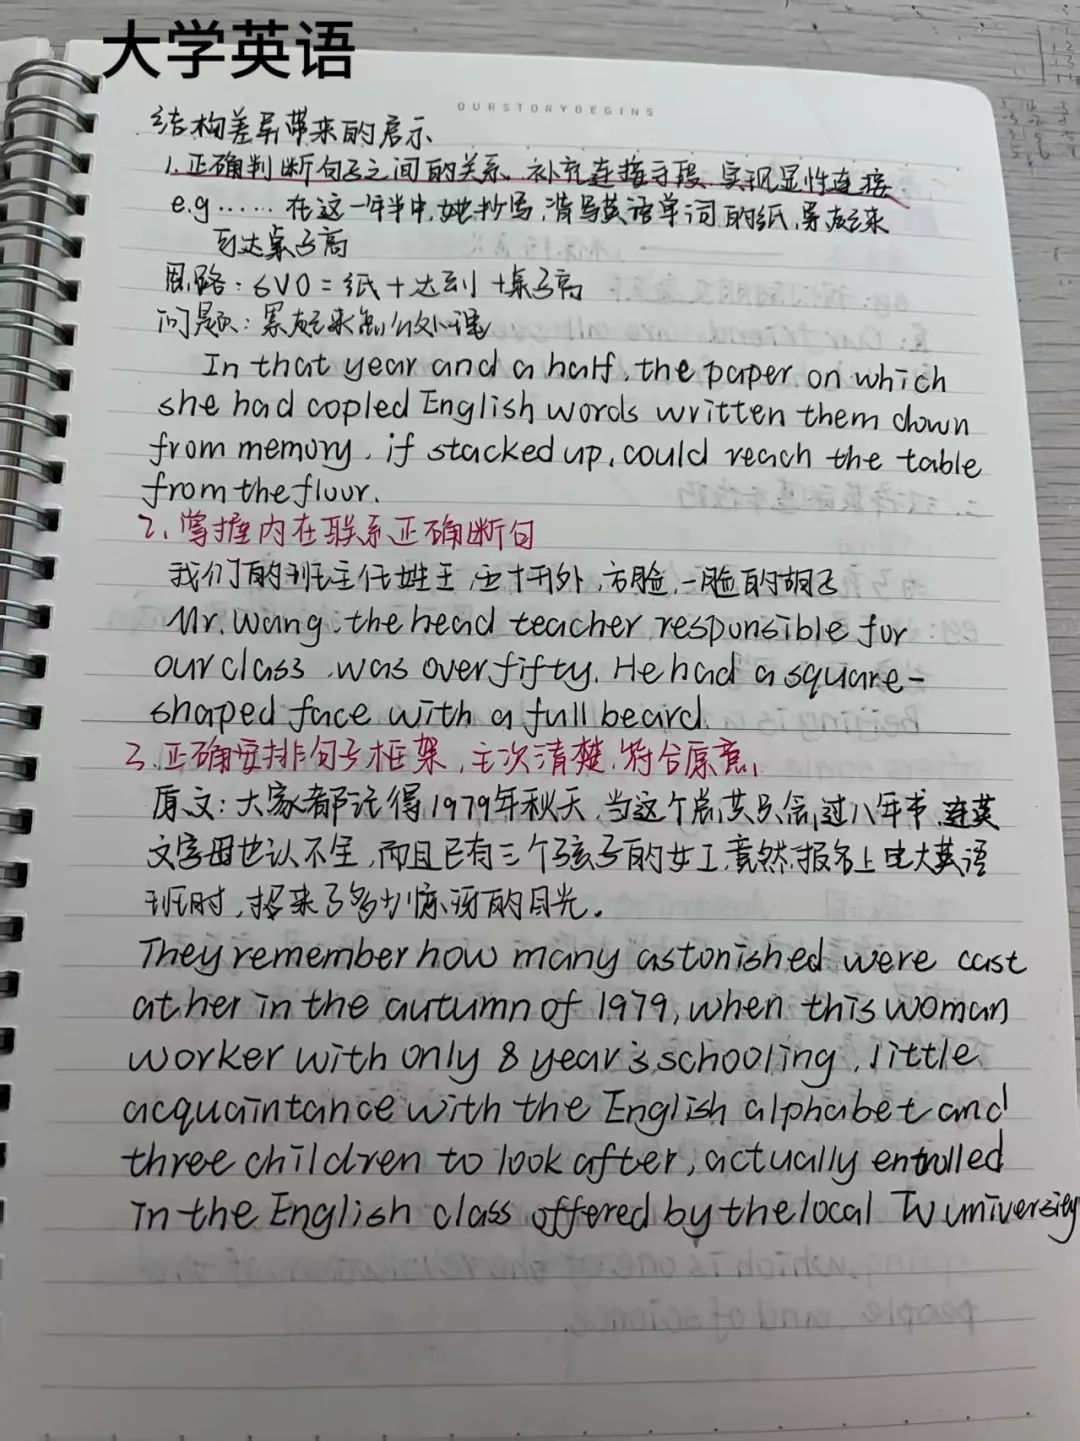 大学英语
OURSTORYBEGINS
结构差异带来的启示
1.正确判断句子之间的关系、补充连接手段.实现显性连接
e.g……在这一年半中,她抄写,背写英语单词的纸,累起来
可达桌子高
思路:SVO=纸+达到+桌子高
问题:累起来怎么处理
In that year and a half, the paper on which
she had copled English words written them down
from memory, if stacked up, could reach the table
from the fluur.
2.掌握内在联系正确断句
我们的班主任姓王,五十开外,方脸,一脸的胡子
Mr. Wang, the head teacher responsible for
our class, was over fifty. He had a square-
shaped face with a full beard.
3.正确安排句子框架,主次清楚.符合原意,
原文:大家都记得,1979年秋天,当这个总共只念过八年书,连英
文字母也认不全,而且已有三个孩子的女工,竟然报名上电大英语
班时,招来了多少惊讶的目光。
They remember how many astonished were cast
at her in the autumn of 1979, when this woman
worker with only 8 year's schooling, little
acquaintance with the English alphabet and
three children to look after, actually entrolled
in the English class offered by the local TV university